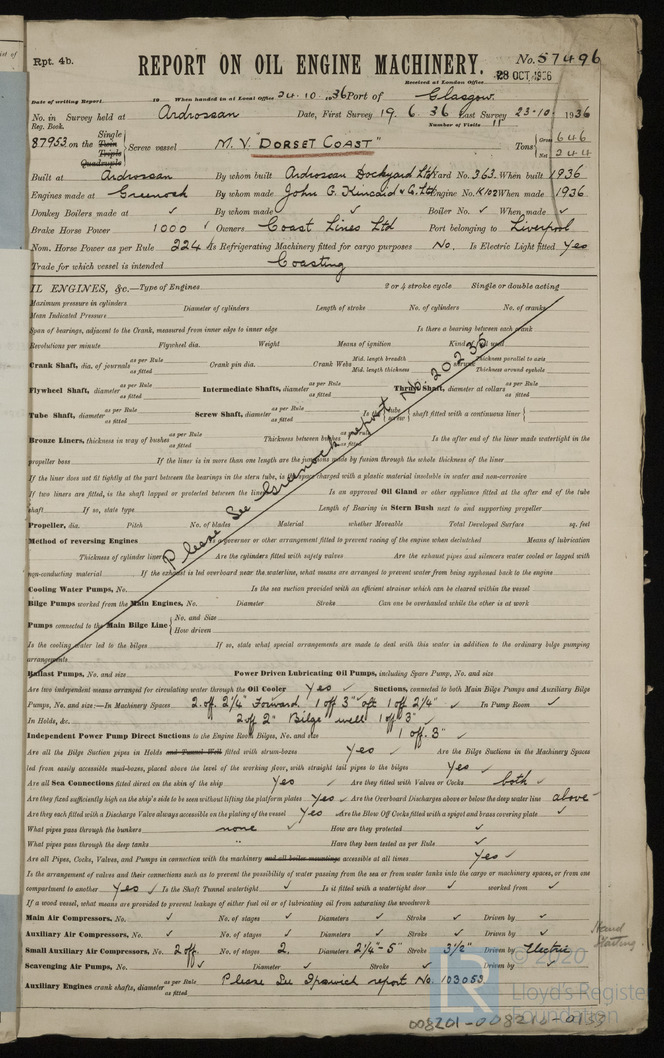 Rpt. 4b.
REPORT ON OIL ENGINE MACHINERY.
No. 57496
Received at London Office 28 OCT 1936
Date of writing Report 19 When handed in at Local Office 24.10.1936 Port of Glasgow.
No. in Reg. Book. Survey held at Ardrossan Date, First Survey 19.6.36 Last Survey 23-10-1936
Number of Visits 11
87953 on the Single Twin Triple Quadruple Screw vessel M.V. "DORSET COAST" Tons Gross 646 Net 244
Built at Ardrossan By whom built Ardrossan Dockyard Ltd Yard No. 363. When built 1936
Engines made at Greenock By whom made John G. Kincaid & Co. Ltd Engine No. K102 When made 1936
Donkey Boilers made at ✓ By whom made ✓ Boiler No. ✓ When made ✓
Brake Horse Power 1000 Owners Coast Lines Ltd Port belonging to Liverpool
Nom. Horse Power as per Rule 224 Is Refrigerating Machinery fitted for cargo purposes No. Is Electric Light fitted Yes
Trade for which vessel is intended Coasting
IL ENGINES, &c.—Type of Engines 2 or 4 stroke cycle Single or double acting
Maximum pressure in cylinders Diameter of cylinders Length of stroke No. of cylinders No. of cranks
Mean Indicated Pressure
Span of bearings, adjacent to the Crank, measured from inner edge to inner edge Is there a bearing between each crank
Revolutions per minute Flywheel dia. Weight Means of ignition Kind of fuel used
Crank Shaft, dia. of journals as per Rule as fitted Crank pin dia. Crank Webs Mid. length breadth Mid. length thickness Thickness parallel to axis Thickness around eyehole
Flywheel Shaft, diameter as per Rule as fitted Intermediate Shafts, diameter as per Rule as fitted Thrust Shaft, diameter at collars as per Rule as fitted
Tube Shaft, diameter as per Rule as fitted Screw Shaft, diameter as per Rule as fitted Is the tube screw shaft fitted with a continuous liner
Bronze Liners, thickness in way of bushes as per Rule as fitted Thickness between bushes as per rule as fitted Is the after end of the liner made watertight in the
propeller boss If the liner is in more than one length are the junctions made by fusion through the whole thickness of the liner
If the liner does not fit tightly at the part between the bearings in the stern tube, is the space charged with a plastic material insoluble in water and non-corrosive
If two liners are fitted, is the shaft lapped or protected between the liners Is an approved Oil Gland or other appliance fitted at the after end of the tube
shaft If so, state type Length of Bearing in Stern Bush next to and supporting propeller
Propeller, dia. Pitch No. of blades Material whether Moveable Total Developed Surface sq. feet
Method of reversing Engines Is a governor or other arrangement fitted to prevent racing of the engine when declutched Means of lubrication
Thickness of cylinder liners Are the cylinders fitted with safety valves Are the exhaust pipes and silencers water cooled or lagged with
non-conducting material If the exhaust is led overboard near the waterline, what means are arranged to prevent water from being syphoned back to the engine
Cooling Water Pumps, No. Is the sea suction provided with an efficient strainer which can be cleared within the vessel
Bilge Pumps worked from the Main Engines, No. Diameter Stroke Can one be overhauled while the other is at work
Pumps connected to the Main Bilge Line No. and Size How driven
Is the cooling water led to the bilges If so, state what special arrangements are made to deal with this water in addition to the ordinary bilge pumping
arrangements
Please See Greenock report No. 20235
Ballast Pumps, No. and size Power Driven Lubricating Oil Pumps, including Spare Pump, No. and size
Are two independent means arranged for circulating water through the Oil Cooler Yes ✓ Suctions, connected to both Main Bilge Pumps and Auxiliary Bilge
Pumps, No. and size:—In Machinery Spaces 2 off 2¼" Forward. 1 off 3" aft 1 off 2¼" ✓ In Pump Room ✓
In Holds, &c. 2 off 2" Bilge well 1 off 3" ✓
Independent Power Pump Direct Suctions to the Engine Room Bilges, No. and size 1 off. 3" ✓
Are all the Bilge Suction pipes in Holds and Tunnel Well fitted with strum-boxes Yes ✓ Are the Bilge Suctions in the Machinery Spaces
led from easily accessible mud-boxes, placed above the level of the working floor, with straight tail pipes to the bilges Yes ✓
Are all Sea Connections fitted direct on the skin of the ship Yes ✓ Are they fitted with Valves or Cocks both ✓
Are they fixed sufficiently high on the ship's side to be seen without lifting the platform plates Yes ✓ Are the Overboard Discharges above or below the deep water line above ✓
Are they each fitted with a Discharge Valve always accessible on the plating of the vessel Yes Are the Blow Off Cocks fitted with a spigot and brass covering plate ✓
What pipes pass through the bunkers none ✓ How are they protected ✓
What pipes pass through the deep tanks " Have they been tested as per Rule ✓
Are all Pipes, Cocks, Valves, and Pumps in connection with the machinery and all boiler mountings accessible at all times Yes ✓
Is the arrangement of valves and their connections such as to prevent the possibility of water passing from the sea or from water tanks into the cargo or machinery spaces, or from one
compartment to another Yes ✓ Is the Shaft Tunnel watertight ✓ Is it fitted with a watertight door ✓ worked from ✓
If a wood vessel, what means are provided to prevent leakage of either fuel oil or of lubricating oil from saturating the woodwork
Main Air Compressors, No. ✓ No. of stages ✓ Diameters ✓ Stroke ✓ Driven by ✓
Auxiliary Air Compressors, No. ✓ No. of stages ✓ Diameters ✓ Stroke ✓ Driven by ✓
Small Auxiliary Air Compressors, No. 2 off. No. of stages 2. Diameters 2¼"-5" Stroke 3½" Driven by Electric
Hand Starting
Scavenging Air Pumps, No. ✓ Diameter ✓ Stroke ✓ Driven by ✓
Auxiliary Engines crank shafts, diameter as per Rule as fitted Please See Ipswich report No. 103053
© 2020
LR Lloyd's Register Foundation
008201-008210-0153